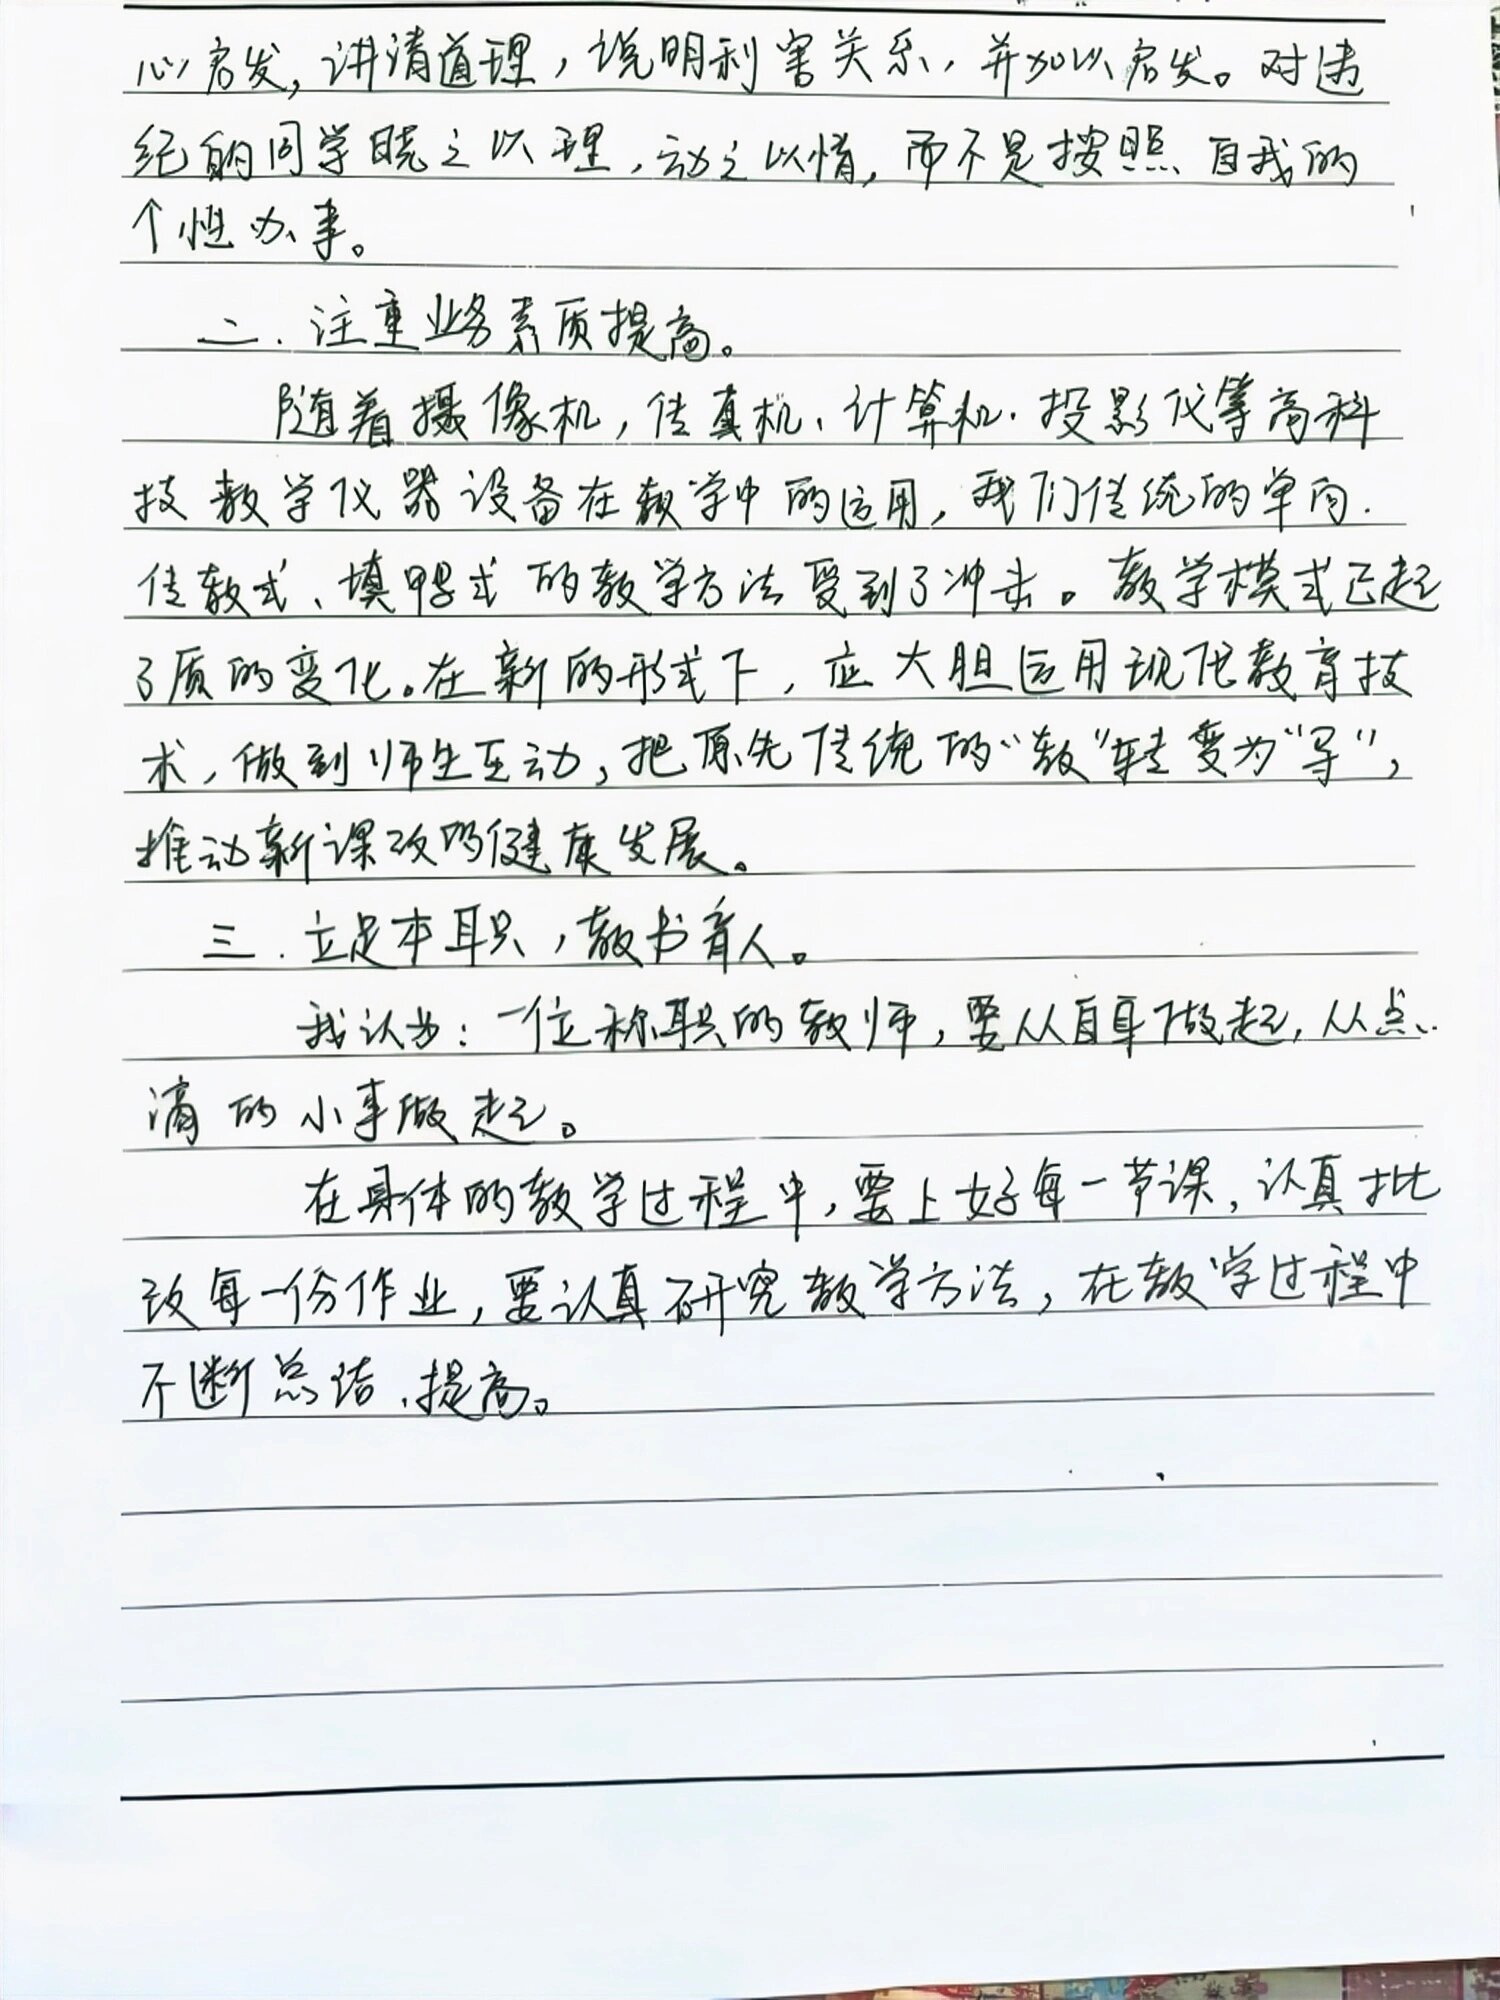 心启发，讲清道理，说明利害关系，并加以启发。对违
纪的同学晓之以理，动之以情，而不是按照自我的
个性办事。
二．注重业务素质提高。
随着摄像机，传真机、计算机．投影仪等高科
技教学仪器设备在教学中的运用，我们传统的单向
传教式、填鸭式的教学方法受到了冲击。教学模式已起
了质的变化。在新的形式下，应大胆运用现代教育技
术，做到师生互动，把原先传统的“教”转变为“导”，
推动新课改的健康发展。
三．立足本职，教书育人。
我认为：一位称职的教师，要从自身做起，从点
滴的小事做起。
在具体的教学过程中，要上好每一节课，认真批
改每一份作业，要认真研究教学方法，在教学过程中
不断总结、提高。